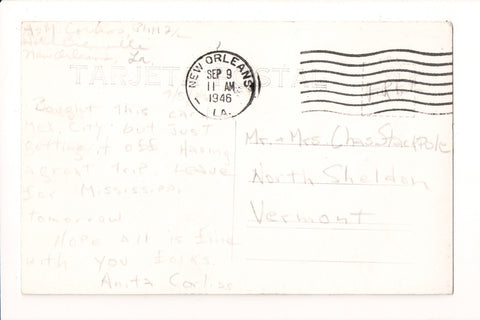 New Orleans, La.
TARJETA POSTAL
NEW ORLEANS
SEP 9
11 AM
1946
LA.
Bought this card
Mex. City but just
getting it off. Having
a great trip. Leave
for Mississippi
tomorrow
Hope all is fine
with you folks.
Anita Corliss
Mr. + Mrs. Chas. Stackpole
North Sheldon
Vermont